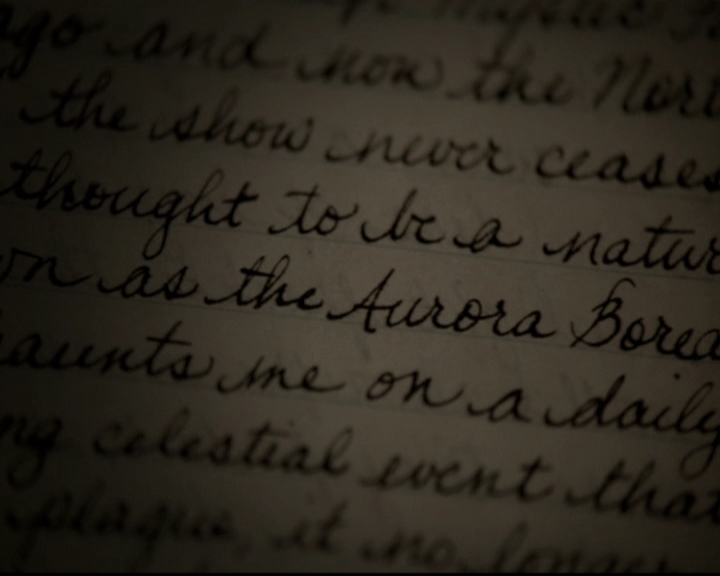 ago and now the Nort
the show never ceases
thought to be a natur
wn as the Aurora Borea
haunts me on a daily
ng celestial event that
plague, it no longer